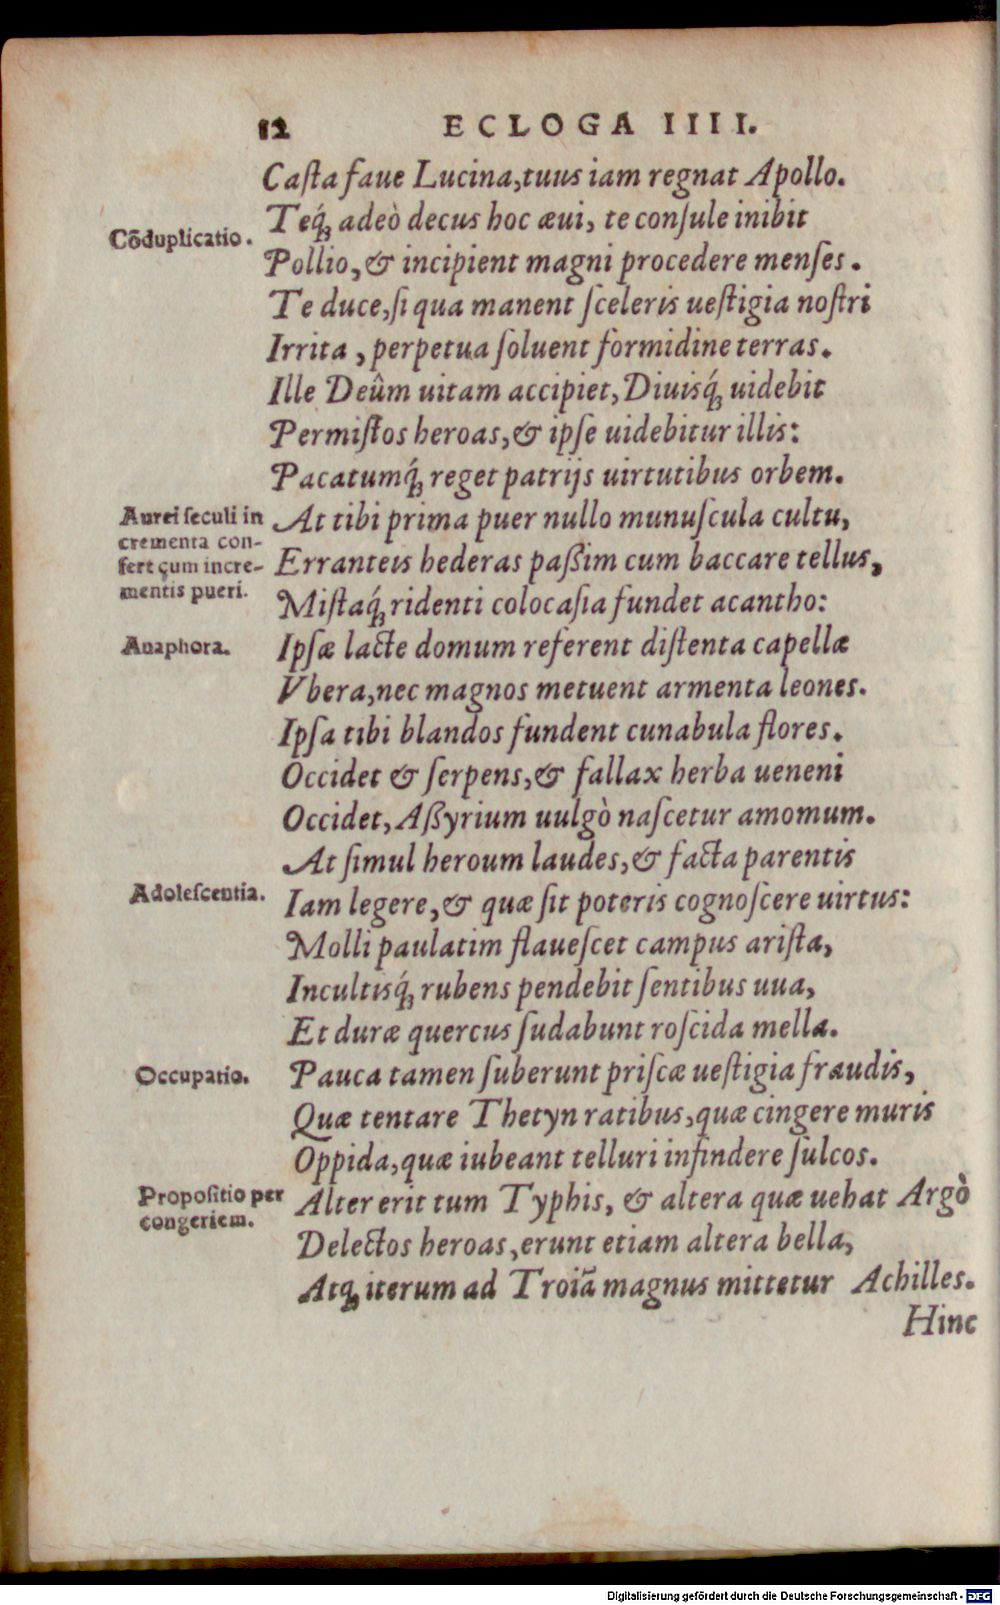 12
ECLOGA IIII.
Caſta faue Lucina, tuus iam regnat Apollo.
Teq́; adeò decus hoc æui, te conſule inibit
Cōduplicatio.
Pollio, & incipient magni procedere menſes.
Te duce, ſi qua manent ſceleris ueſtigia noſtri
Irrita, perpetua ſoluent formidine terras.
Ille Deûm uitam accipiet, Diuisq́; uidebit
Permiſtos heroas, & ipſe uidebitur illis:
Pacatumq́; reget patrijs uirtutibus orbem.
Aurei ſeculi in
crementa con-
fert cum incre-
mentis pueri.
At tibi prima puer nullo munuſcula cultu,
Erranteis hederas paßim cum baccare tellus,
Miſtaq́; ridenti colocaſia fundet acantho:
Anaphora.
Ipſæ lacte domum referent diſtenta capellæ
Vbera, nec magnos metuent armenta leones.
Ipſa tibi blandos fundent cunabula flores.
Occidet & ſerpens, & fallax herba ueneni
Occidet, Aßyrium uulgò naſcetur amomum.
At ſimul heroum laudes, & facta parentis
Adoleſcentia.
Iam legere, & quæ ſit poteris cognoſcere uirtus:
Molli paulatim flaueſcet campus ariſta,
Incultisq́; rubens pendebit ſentibus uua,
Et duræ quercus ſudabunt roſcida mella.
Occupatio.
Pauca tamen ſuberunt priſcæ ueſtigia fraudis,
Quæ tentare Thetyn ratibus, quæ cingere muris
Oppida, quæ iubeant telluri infindere ſulcos.
Propoſitio per
congeriem.
Alter erit tum Typhis, & altera quæ uehat Argò
Delectos heroas, erunt etiam altera bella,
Atq; iterum ad Troiā magnus mittetur Achilles.
Hinc
Digitalisierung gefördert durch die Deutsche Forschungsgemeinschaft - DFG